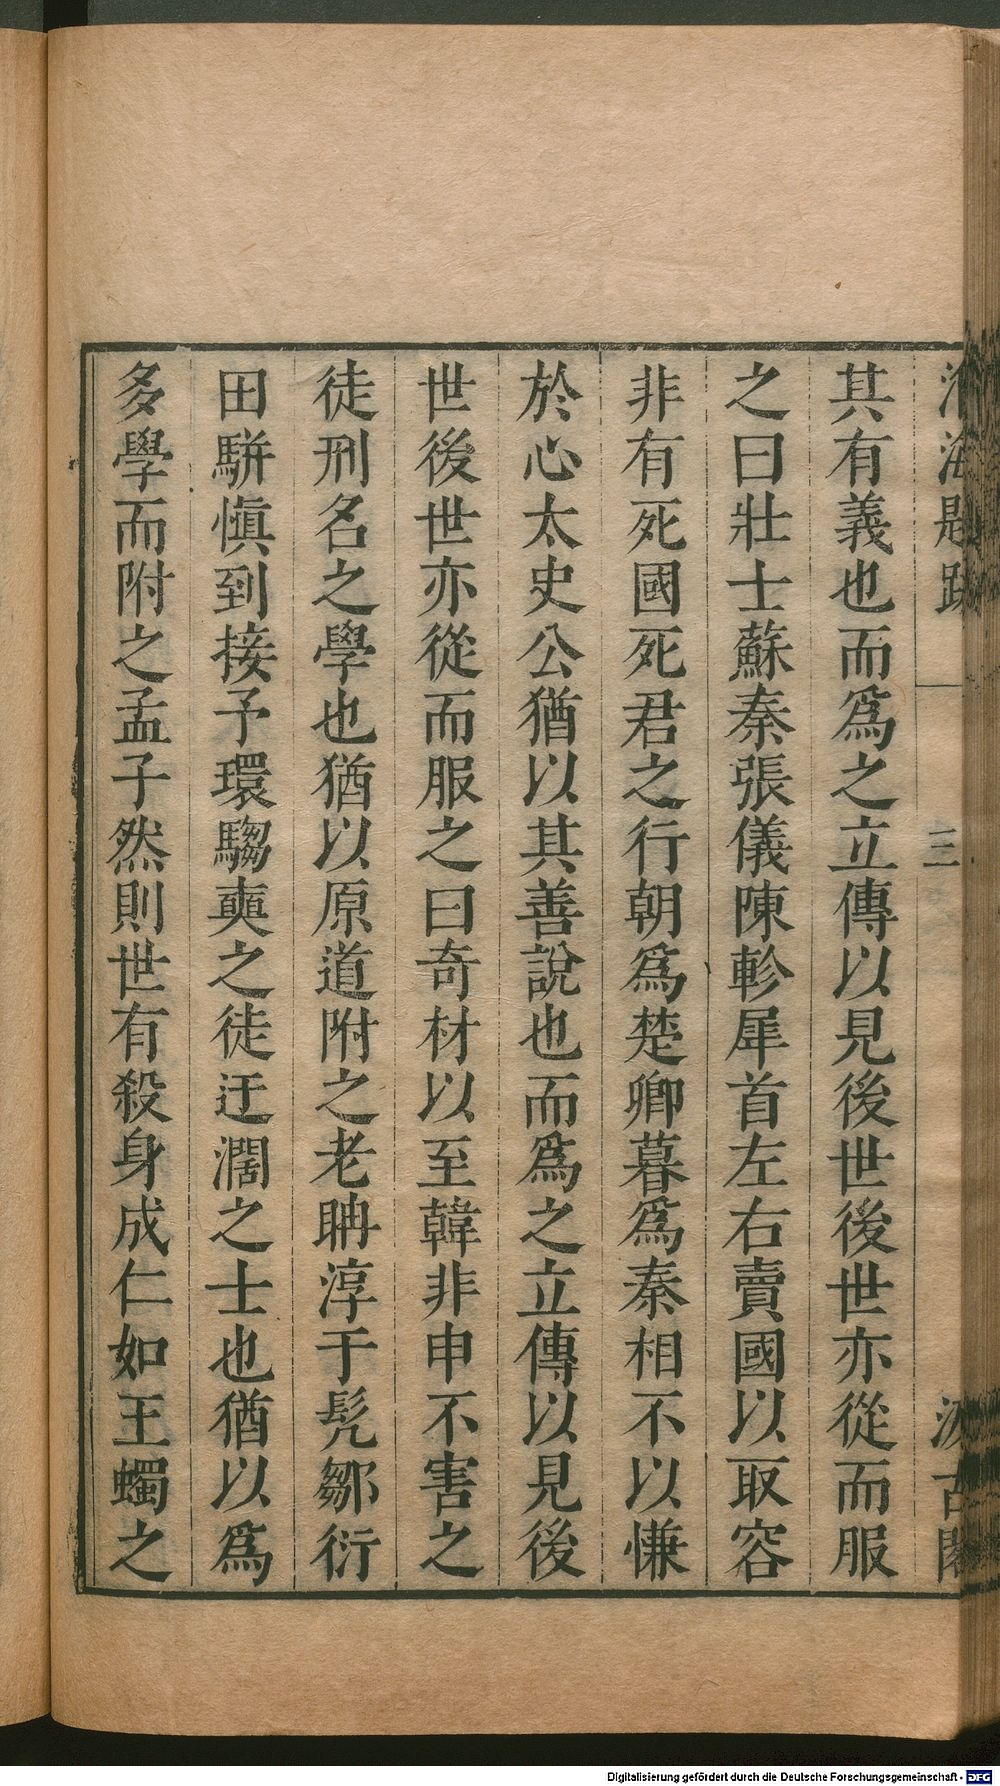 海題跋
三
汲古閣
其有義也而爲之立傳以見後世後世亦從而服
之曰壯士蘇秦張儀陳軫犀首左右賣國以取容
非有死國死君之行朝爲楚卿暮爲秦相不以慊
於心太史公猶以其善說也而爲之立傳以見後
世後世亦從而服之曰奇材以至韓非申不害之
徒刑名之學也猶以原道附之老聃淳于髡鄒衍
田駢慎到接予環騶奭之徒迂濶之士也猶以爲
多學而附之孟子然則世有殺身成仁如王蠋之
Digitalisierung gefördert durch die Deutsche Forschungsgemeinschaft - DFG